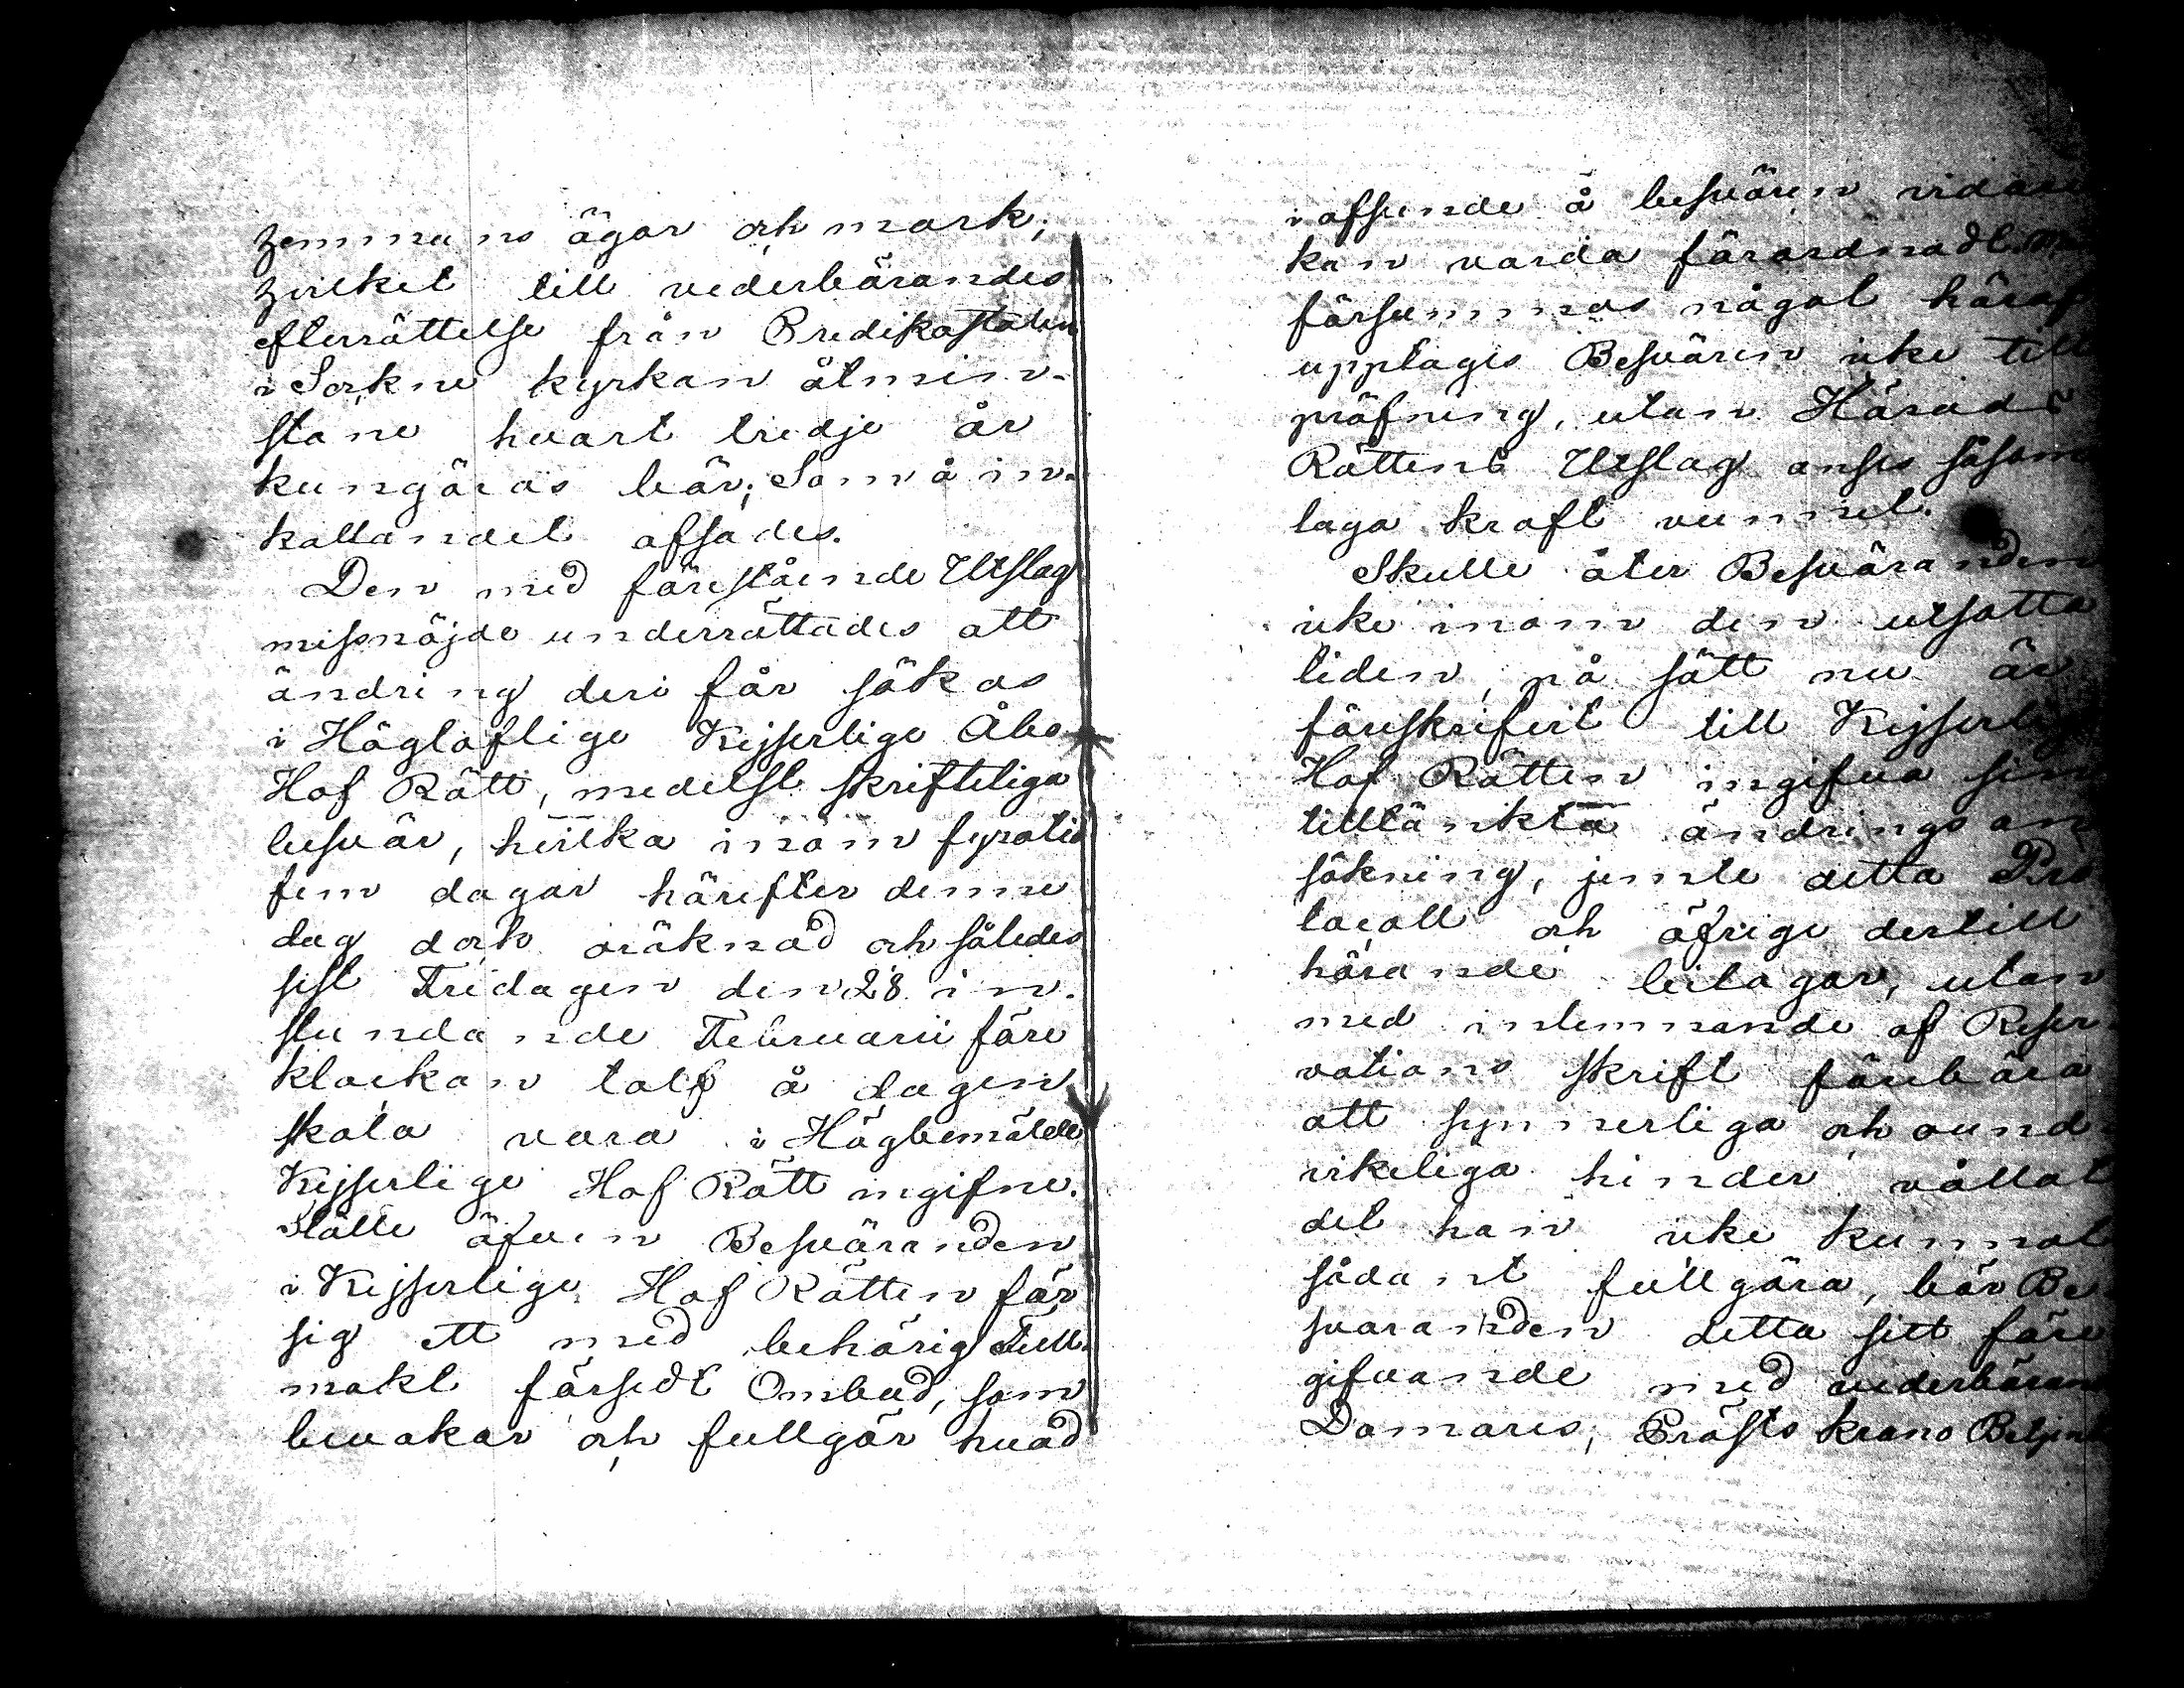 hemmans ägor och mark;
hvilket till vederbörandes
efterrättelse från Predikostolen
i Sockne kyrkan åtmin-
stone hvart tredje år
kungöras bör; Som å in-
kallandet afsades.
Den med förestående Utslag
missnöjde underrättades att
ändring deri får sökas
i Högloflige Kejserlige Åbo
Hof Rätt, medelst skrifteliga
besvär, hvilka inom fyratio
fem dagar härefter denne
dag dock oräknad och således
sist Fridagen den 28 in-
stundande Februarii före
klockan tolf å dagen
skola vara i Högbemälde
Kejserlige Hof Rätt ingifne.
Ställe äfven Besväranden
i Kejserlige Hof Rätten för
sig ett med behörig Full-
makt försedt Ombud, som
bevakar och fullgör hvad
i afseende å besvären vidare
kan varda förordnadt.
försummas något häraf
upptages Besvären icke till
pröfning, utan Härads
Rättens Utslag anses såsom
laga kraft vunnet.
Skulle åter Besväranden
icke inom den utsatta
tiden, på sätt nu är
föreskrifvit till Kejserlige
Hof Rätten ingifva sin
tilltänkta ändrings an-
sökning, jemte detta Pro
tocoll och öfrige dertill
hörande bilagor, utan
med inlemnande af Reser-
vations skrift förebära
att synnerliga och ound-
vikeliga hinder vållat
det han icke kunnat
sådant fullgöra, bör Be-
svaranden detta sitt före
gifvande med vederböran
Domares, Prästs krono Betjent